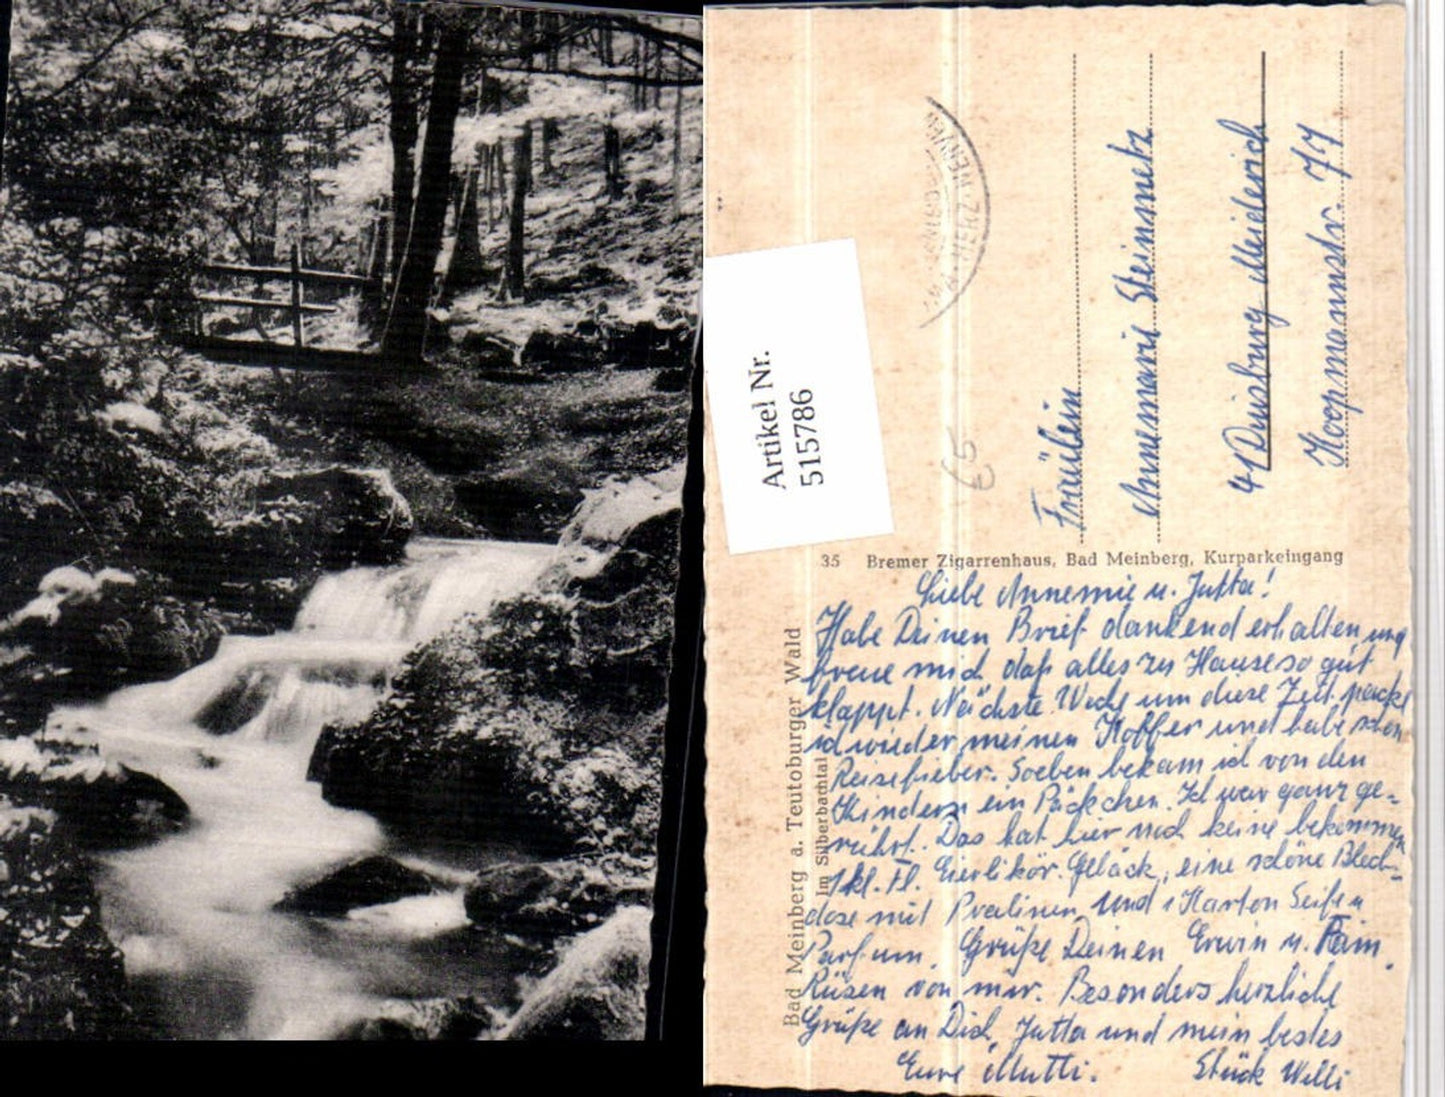 Artikel Nr.
515786
HERZ NERVEN
£5
Fräulein
Annemarie Steinmetz
41 Duisburg Meiderich
Koopmannstr. 77
35 Bremer Zigarrenhaus, Bad Meinberg, Kurparkeingang
Bad Meinberg a. Teutoburger Wald
Im Silberbachtal
Liebe Annemie u. Jutta!
Habe Deinen Brief dankend erhalten und
freue mich daß alles zu Hause so gut
klappt. Nächste Woche um diese Zeit packe
ich wieder meinen Koffer und habe schon
Reisefieber. Soeben bekam ich von den
Kindern ein Päckchen. Ich war ganz ge-
rührt. Das hat hier noch keine bekommen
1 kl. Fl. Eierlikör. Gebäck, eine schöne Blech-
dose mit Pralinen und 1 Karton Seife u
Parfum. Grüße Deinen Erwin u. Fam.
Rüsen von mir. Besonders herzliche
Grüße an Dich, Jutta und mein bestes
Eure Mutti. Stück Willi